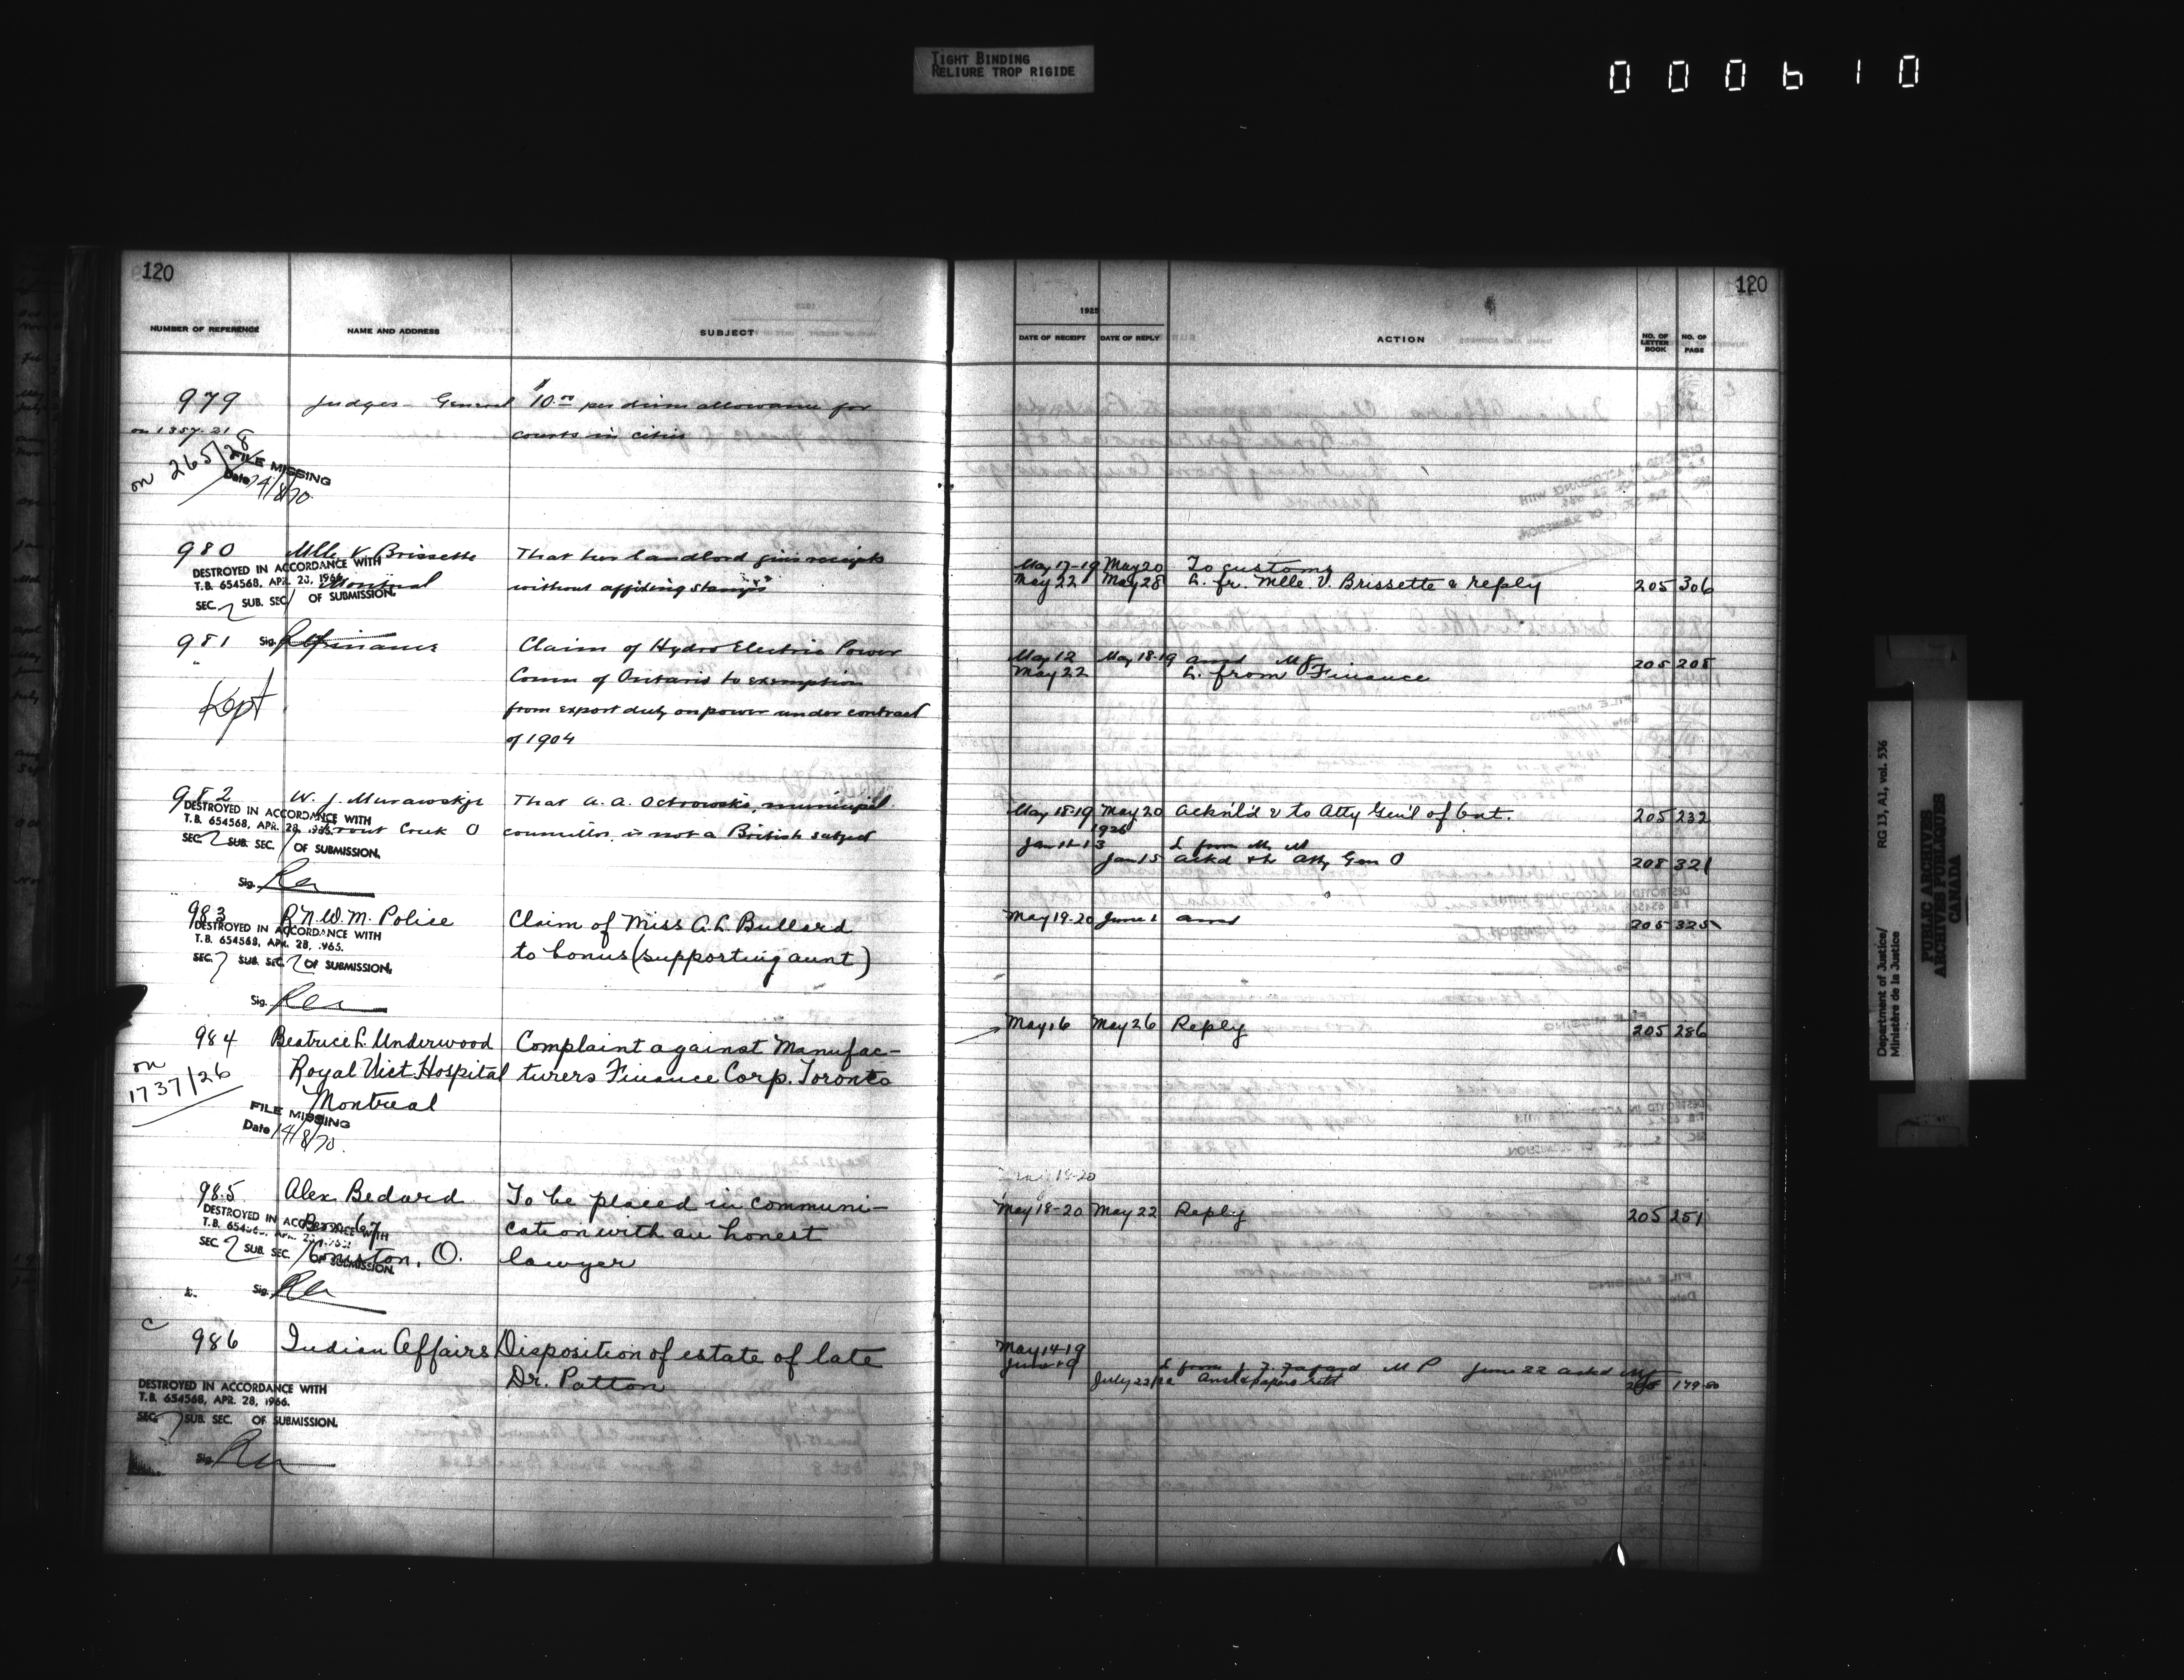 TIGHT BINDING
RELIURE TROP RIGIDE
000610
120
NUMBER OF REFERENCE NAME AND ADDRESS SUBJECT
979 Judges - General $10.00 per diem allowance for
on 1357-21 courts in cities
on 265/28
FILE MISSING
Date 14/8/70
980 Mlle V. Brissette That her landlord gives receipts
Montreal without affixing stamps
DESTROYED IN ACCORDANCE WITH
T.B. 654568, APR. 28, 1966.
SEC. 2 SUB. SEC. 1 OF SUBMISSION.
Sig.
981 Finance Claim of Hydro Electric Power
Comm of Ontario to exemption
Kept from export duty on power under contract
of 1904
982 W. J. Murawskye That A. A. Ostrowski, municipal
Trout Creek O councillor is not a British subject
DESTROYED IN ACCORDANCE WITH
T.B. 654568, APR. 28, 1966.
SEC. 2 SUB. SEC. 1 OF SUBMISSION.
Sig.
983 R.N.W.M. Police Claim of Miss A.L. Bullard
to bonus (supporting aunt)
DESTROYED IN ACCORDANCE WITH
T.B. 654568, APR. 28, 1965.
SEC. 7 SUB. SEC. 2 OF SUBMISSION.
Sig.
984 Beatrice L. Underwood Complaint against Manufac-
on Royal Vict. Hospital turers Finance Corp. Toronto
1737/26 Montreal
FILE MISSING
Date 14/8/70.
985 Alex Bedard To be placed in communi-
Box 67 cation with an honest
Coniston, O. lawyer
DESTROYED IN ACCORDANCE WITH
SEC. 2 SUB. SEC. 1 OF SUBMISSION.
Sig.
c
986 Indian Affairs Disposition of estate of late
Dr. Patton
DESTROYED IN ACCORDANCE WITH
T.B. 654568, APR. 28, 1966.
SEC. 7 SUB. SEC. OF SUBMISSION.
Sig.
120
1925
DATE OF RECEIPT DATE OF REPLY ACTION NO. OF LETTER BOOK NO. OF PAGE
May 17-19 May 20 To customs
May 22 May 28 L. fr. Mlle. V. Brissette & reply 205 306
May 12 May 18-19 ansd 205 208
May 22 L. from Finance
May 18-19 May 20 Ackn'l'd & to Atty Gen'l of Ont. 205 232
1926
Jan 11-13 L from Mr M
Jan 15 ackd & to Atty Gen O 208 321
May 19-20 June 1 ansd 205 325
May 16 May 26 Reply 205 286
May 18-20
May 18-20 May 22 Reply 205 251
May 14-19
L from J. F. Fafard M P June 22 ackd
July 22/22 Ansd & papers retd 179-80
Department of Justice/
Ministère de la Justice
RG 13, A1, vol. 536
PUBLIC ARCHIVES
ARCHIVES PUBLIQUES
CANADA